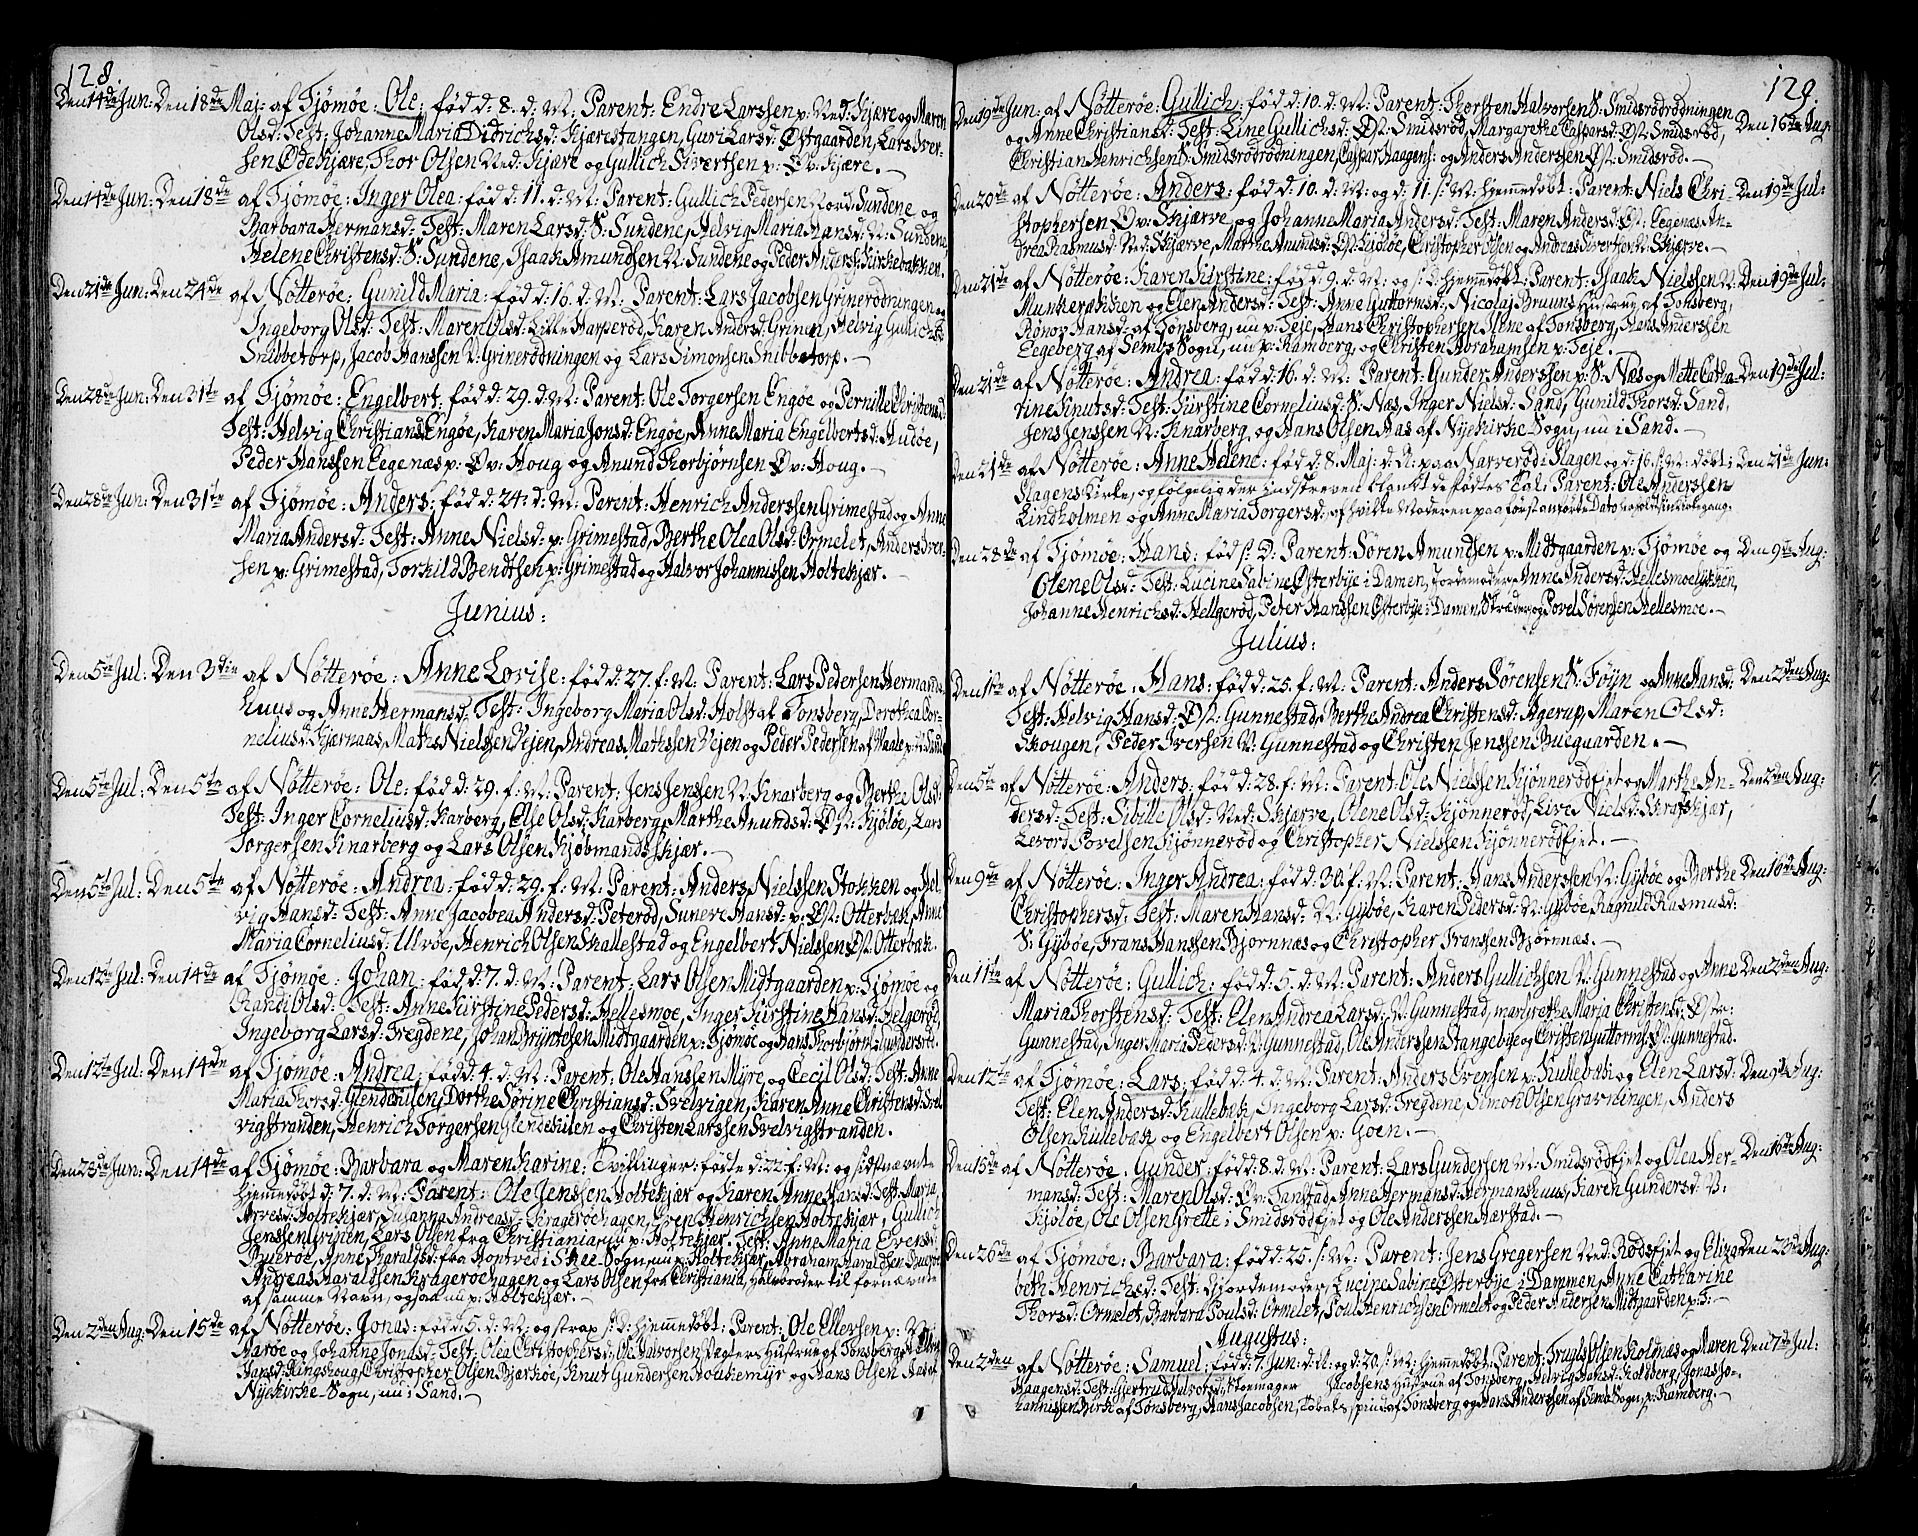 128.
Den 14de Jun: Den 18de Maj: af Tjømøe: Ole: fød d: 8. d: M: Parent: Endre Larssen p: Ned: Kjære og Maren
Olsd: Test: Johanne Maria Didrichsd: Kjærestangen, Guri Larsd: Østgaarden, Lars Iver-
sen Ødekjære, Thor Olsen Ned: Kjære og Gullich Sivertsen p: Øv: Kjære.
Den 14de Jun: Den 18de af Tjømøe: Inger Olea: fød d: 11. d: M: Parent: Gullich Pedersen Nord: Sundene og
Barbara Hermansd: Test: Maren Larsd: S: Sundene, Helvig Maria Hansd: N: Sundene,
Helene Christensd: S: Sundene, Isaak Amundsen N: Sundene og Peder Anders: Kirkebakken.
Den 21de Jun: Den 24de af Nøtterøe: Gunild Maria: fød d: 16. d: M: Parent: Lars Jacobsen Grinerødningen og
Ingeborg Olsd: Test: Maren Olsd: Lille Harperød, Karen Andersd: Grimen, Helvig Gullichsd:
Snibbetorp, Jacob Hanssen N: Grinerødningen og Lars Simonsen Snibbetorp.
Den 28de Jun: Den 31te af Tjømøe: Engelbert: fød d: 29. d: M: Parent: Ole Torgersen Engøe og Pernille Christensd:
Test: Helvig Christiansd: Engøe, Karen Maria Jonsd: Engøe, Anne Maria Engelbertsd: Hudøe,
Peder Hanssen Eegenæs p: Øv: Houg og Anund Thorbjørnsen Øv: Houg.
Den 28de Jun: Den 31te af Tjømøe: Anders: fød d: 24. d: M: Parent: Henrich Anderssen Grimestad og Anne
Maria Andersd: Test: Anne Nielsd: p: Grimestad, Berthe Olea Olsd: Ormelet, Anders Iver-
sen p: Grimestad, Torkild Bendtsen p: Grimestad og Halvor Johannissen Holtekjær.
Junius:
Den 5te Jul: Den 3die af Nøtterøe: Anne Lovise: fød d: 27. f: M: Parent: Lars Pedersen Hermands-
huus og Anne Hermansd: Test: Ingeborg Maria Olsd: Holst af Tønsberg, Dorothea Cor-
neliusd: Kjærnaas, Mathis Nielssen Vejen, Andreas Mathssen Vejen og Peder Pedersen af Vaale
Den 5te Jul: Den 5te af Nøtterøe: Ole: fød d: 29. f: M: Parent: Jens Jenssen N: Knarberg og Berthe Olsd:
Test: Inger Corneliusd: Karberg, Else Olsd: Karberg, Marthe Anundsd: Øst: Kjøløe, Lars
Torgersen Knarberg og Lars Olsen Kjøbmandskjær.
Den 5te Jul: Den 5te af Nøtterøe: Andrea: fød d: 29. f: M: Parent: Anders Nielssen Stokken og Hel-
vig Hansd: Test: Anne Jacobea Andersd: Peterød, Suneve Hansd: p: Øst: Otterbek, Anne
Maria Corneliusd: Ulvøe, Henrich Olsen Skallestad og Engelbert Nielssen Øst: Otterbek.
Den 12te Jul: Den 14de af Tjømøe: Johan: fød d: 7. d: M: Parent: Lars Olsen Midtgaarden p: Tjømøe og
Randi Olsd: Test: Anne Kirstine Pedersd: Hellesmoe, Inger Kirstine Hansd: Helgerød,
Ingeborg Larsd: Tregdene, Johan Bryntesen Midtgaarden p: Tjømøe og Hans Thorbjørns: Gundersrød.
Den 12te Jul: Den 14de af Tjømøe: Andrea: fød d: 4. d: M: Parent: Ole Hanssen Myre og Cecil Olsd: Test: Anne
Maria Thorsd: Glendekilen, Dorthe Sørine Christiansd: Svelvigen, Karen Anne Christensd: Svel-
vigstranden, Henrich Torgersen Glendekilen og Christen Larssen Svelvigstranden.
Den 28de Jun: Den 14de af Tjømøe: Barbara og Maren Karine: Tvillinger: fødte d: 22. f: M: og sidstnævnte
hjemmedøbt d: 7. d: M: Parent: Ole Jenssen Holtekjær og Karen Anne Larsd: Test: Maria
Arvesd: Holtekjær, Susanna Andreasd: Kragerøehagen, Even Henrichsen Holtekjær, Gullich
Jenssen Grinen, Lars Olsen fra Christiania nu p: Holtekjær. Test: Anne Maria Evensd:
Buerøe, Anne Haraldsd: fra Sogn, nu p: Holtekjær, Abraham Haraldsen
Andreas Haraldsen Kragerøehagen og Lars Olsen fra Christiania, Halvbroder til fornævnte
af samme Navn, ogsaa nu p: Holtekjær.
Den 2den Aug: Den 15de af Nøtterøe: Jonas: fød d: 5. d: M: og strax s: D: hjemmedøbt: Parent: Ole Ellevsen p: N:
Aarøe og Johanne Jonasd: Test: Olea Christophersd: Ole Halvorsen Pegters Hustrue af Tønsberg,
Hansd: Ringshoug, Christopher Olsen Bjerkøe, Knut Gundersen Houkemyr og Hans Olsen Aas af
Nyekirke-Sogn, nu i Sand.
129.
Den 19de Jun: af Nøtterøe: Gullich: fød d: 10. d: M: Parent: Thorsten Halvorsen S: Smidsrødrødningen Den 16de Aug:
og Anne Christiansd: Test: Line Gullichsd: Øst: Smidsrød, Margarethe Caspersd: Øst: Smidsrød,
Christian Henrichsen S: Smidsrødrødningen, Caspar Haagens: og Anders Anderssen Øst: Smidsrød.
Den 20de af Nøtterøe: Anders: fød d: 10. d: M: og d: 11. s: M: hjemmedøbt: Parent: Niels Chri- Den 19de Jul:
stophersen Øv: Skjærve og Johanne Maria Andersd: Test: Maren Andersd: Øst: Eegenæs, An-
drea Rasmusd: Ned: Skjærve, Marthe Anundsd: Øst: Kjøløe, Christopher Olsen og Andreas Sivertsen N: Skjærve.
Den 21de af Nøtterøe: Karen Kirstine: fød d: 9. d: M: og s: D: hjemmedøbt: Parent: Isaak Nielssen N: Den 19de Jul:
Munkerækken og Elen Andersd: Test: Anne Guttormsd: Nicolaj Bruuns Hustrue af Tønsberg,
Rønov Hansd: af Tønsberg, nu p: Teje, Hans Christophersen Ilene af Tønsberg, Hans Anderssen
Eegeberg af Sembs Sogn, nu p: Ramberg, og Christen Abrahamsen p: Teje.
Den 21de af Nøtterøe: Andrea: fød d: 16. d: M: Parent: Gunder Anderssen p: S: Næs og Mette Catha- Den 19de Jul:
rine Knutsd: Test: Kirstine Corneliusd: S: Næs, Inger Nielsd: Sand, Gunild Thorsd: Sand,
Jens Jenssen N: Knarberg, og Hans Olsen Aas af Nyekirke-Sogn, nu i Sand.
Den 21de af Nøtterøe: Anne Helene: fød d: 8. Maj: d: A: paa Narverød i Slagen og d: 16. s: M: døbt i Den 21de Jun:
Slagens Kirke, og følgelig der indskreven blandt de fødtes Tal: Parent: Ole Anderssen
Lindholmen og Anne Maria Torgersd: af hvilke Moderen paa først anførte Dato holdt sin Kirkegang.
Den 28de af Tjømøe: Hans: fød s: D: Parent: Søren Amundsen p: Midtgaarden p: Tjømøe og Den 9de Aug:
Olene Olsd: Test: Lucine Sabine Østerbye i Damen, Jordemoder, Anne Andersd: Hellesmoeløkken,
Johanne Henrichsd: Hellgerød, Peter Hanssen Østerbye i Damen, Skræder, og Povel Sørensen Hellesmoe.
Julius:
Den 1ste af Nøtterøe: Hans: fød d: 25. f: M: Parent: Anders Sørensen S: Føyn og Anne Hansd: Den 2den Aug:
Test: Helvig Hansd: Øst: Gunnestad, Berthe Andrea Christensd: Agerup, Maren Olsd:
Skougen, Peder Iversen N: Gunnestad og Christen Jenssen Buegaarden.
Den 5te af Nøtterøe: Anders: fød d: 28. f: M: Parent: Ole Nielssen Kjønnerødfjet og Marthe An- Den 2den Aug:
dersd: Test: Sibille Olsd: Ned: Skjærve, Olene Olsd: Kjønnerød, Live Nielsd: Skrafskjær,
Levord Povelsen Kjønnerød og Christopher Nielssen Kjønnerødfjet.
Den 9de af Nøtterøe: Inger Andrea: fød d: 30. f: M: Parent: Hans Anderssen N: Gybøe og Berthe Den 16de Aug:
Christophersd: Test: Maren Hansd: N: Gybøe, Karen Pedersd: N: Gybøe, Ragnild Rasmusd:
S: Gybøe, Frans Hanssen Bjørnnæs og Christopher Franssen Bjørnnæs.
Den 11te af Nøtterøe: Gullich: fød d: 5. d: M: Parent: Anders Gullichsen V: Gunnestad og Anne Den 2den Aug:
Maria Thorstensd: Test: Elen Andrea Larsd: V: Gunnestad, Margrethe Maria Christensd: Østre:
Gunnestad, Inger Maria Pedersd: V: Gunnestad, Ole Anderssen Stangebye og Christen Guttorms: V: Gunnestad.
Den 12te af Tjømøe: Lars: fød d: 4. d: M: Parent: Anders Evensen p: Kullebek og Elen Larsd: Den 9de Aug:
Test: Elen Andersd: Kullebek, Ingeborg Larsd: Tregdene, Simon Olsen Gravningen, Anders
Olsen Kullebak og Engelbert Olsen p: Goen.
Den 15de af Nøtterøe: Gunder: fød d: 8. d: M: Parent: Lars Gundersen M: Smidsrødfjet og Olea Her- Den 16de Aug:
mansd: Test: Maren Olsd: Øv: Tanstad, Anne Hermansd: Hermanshuus, Karen Gundersd: V:
Kjøløe, Ole Olsen Grette i Smidsrødfjet og Ole Anderssen Hærstad.
Den 26de af Tjømøe: Barbara: fød d: 25. s: M: Parent: Jens Gregersen Ned: Rødsfjet og Eliza- Den 23de Aug:
beth Henrichsd: Test: Gjordemoder, Lucine Sabine Østerbye i Dammen, Anne Catharine
Thorsd: Ormelet, Barbara Poulsd: Ormelet, Poul Henrichsen Ormelet og Peder Andersen Midtgaarden p: T:
Augustus:
Den 2den af Nøtterøe: Samuel: fød d: 7. Jun: d: A: og d: 20. s: M: hjemmedøbt: Parent: Truels Olsen Kolnæs og Maren Den 7de Jul:
Haagensd: Test: Gjertrud Halvorsd: Skoemager Jacobsens Hustrue af Tønsberg, Helvig Hansd: Koldberg, Jonas Jo-
hannissen Birk af Tønsberg, Hans Jacobsen, Tobaksspind: af Tønsberg og Hans Anderssen af Sems Sogn, p: Ramberg.